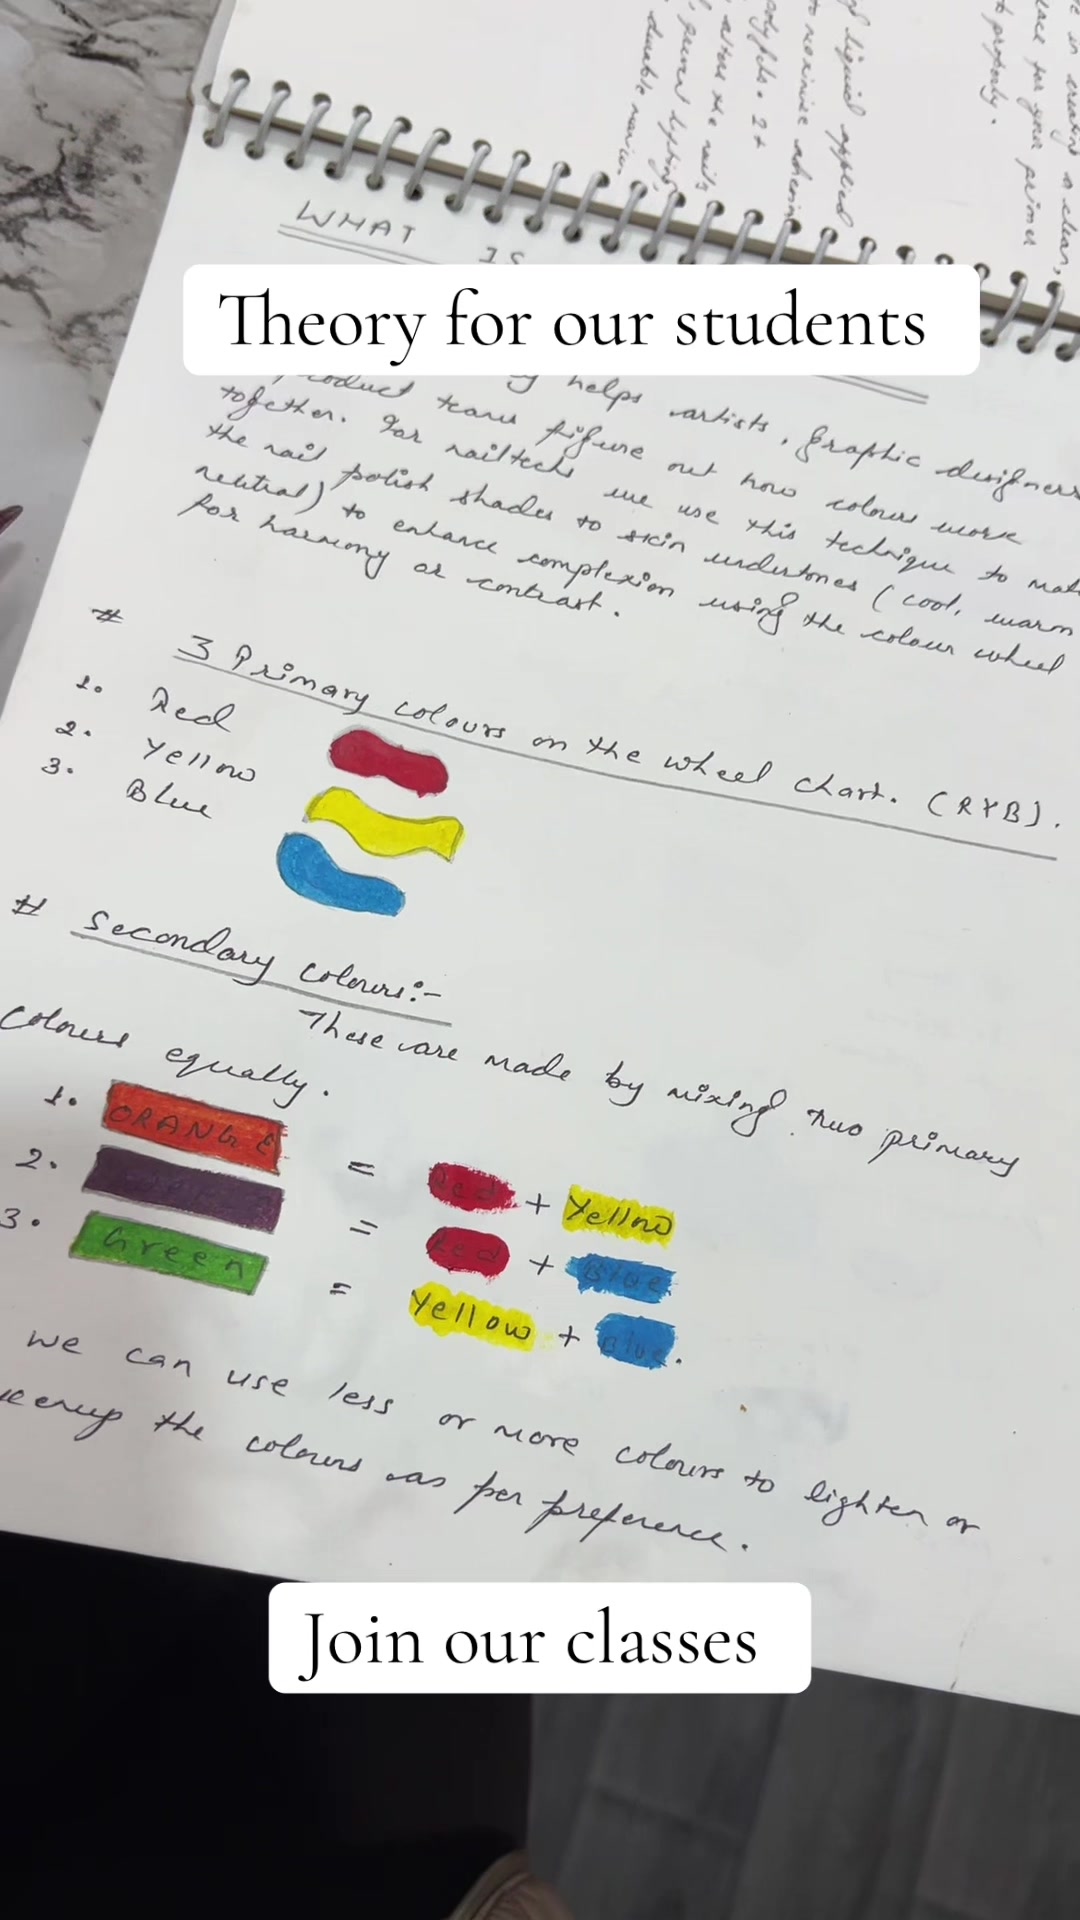 WHAT IS
Theory for our students
helps artists, graphic designers
product teams figure out how colours work
together. For nailtechs we use this technique to mat
the nail polish shades to skin undertones (cool, warm
neutral) to enhance complexion using the colour wheel
for harmony or contrast.
# 3 Primary colours on the wheel chart. (RYB).
1. Red
2. Yellow
3. Blue
# Secondary colours:-
These are made by mixing two primary
colours equally.
1. ORANGE = Red + Yellow
2. = Red + Blue
3. Green = Yellow + Blue.
we can use less or more colours to lighten or
the colours as per preference.
Join our classes
liquid applied
to maximise
2+
the nails
prevent lifting,
durable
in creating a clean,
for your primer
properly.